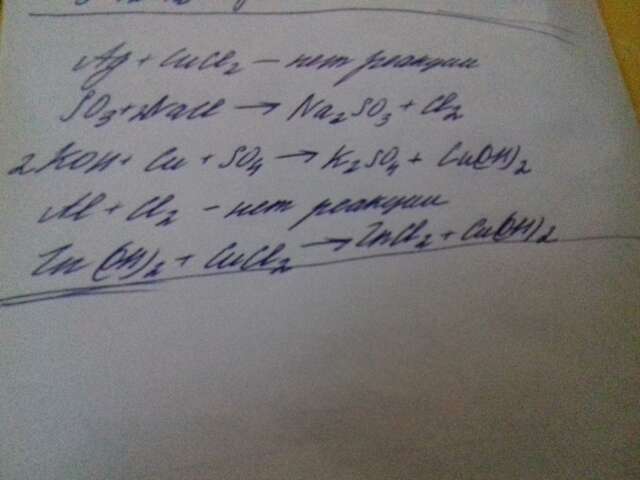 Ag + CuCl2 – нет реакции
SO3 + NaCl → Na2SO3 + Cl2
2KOH + Cu + SO4 → K2SO4 + Cu(OH)2
Al + Cl2 – нет реакции
Zn(OH)2 + CuCl2 → ZnCl2 + Cu(OH)2